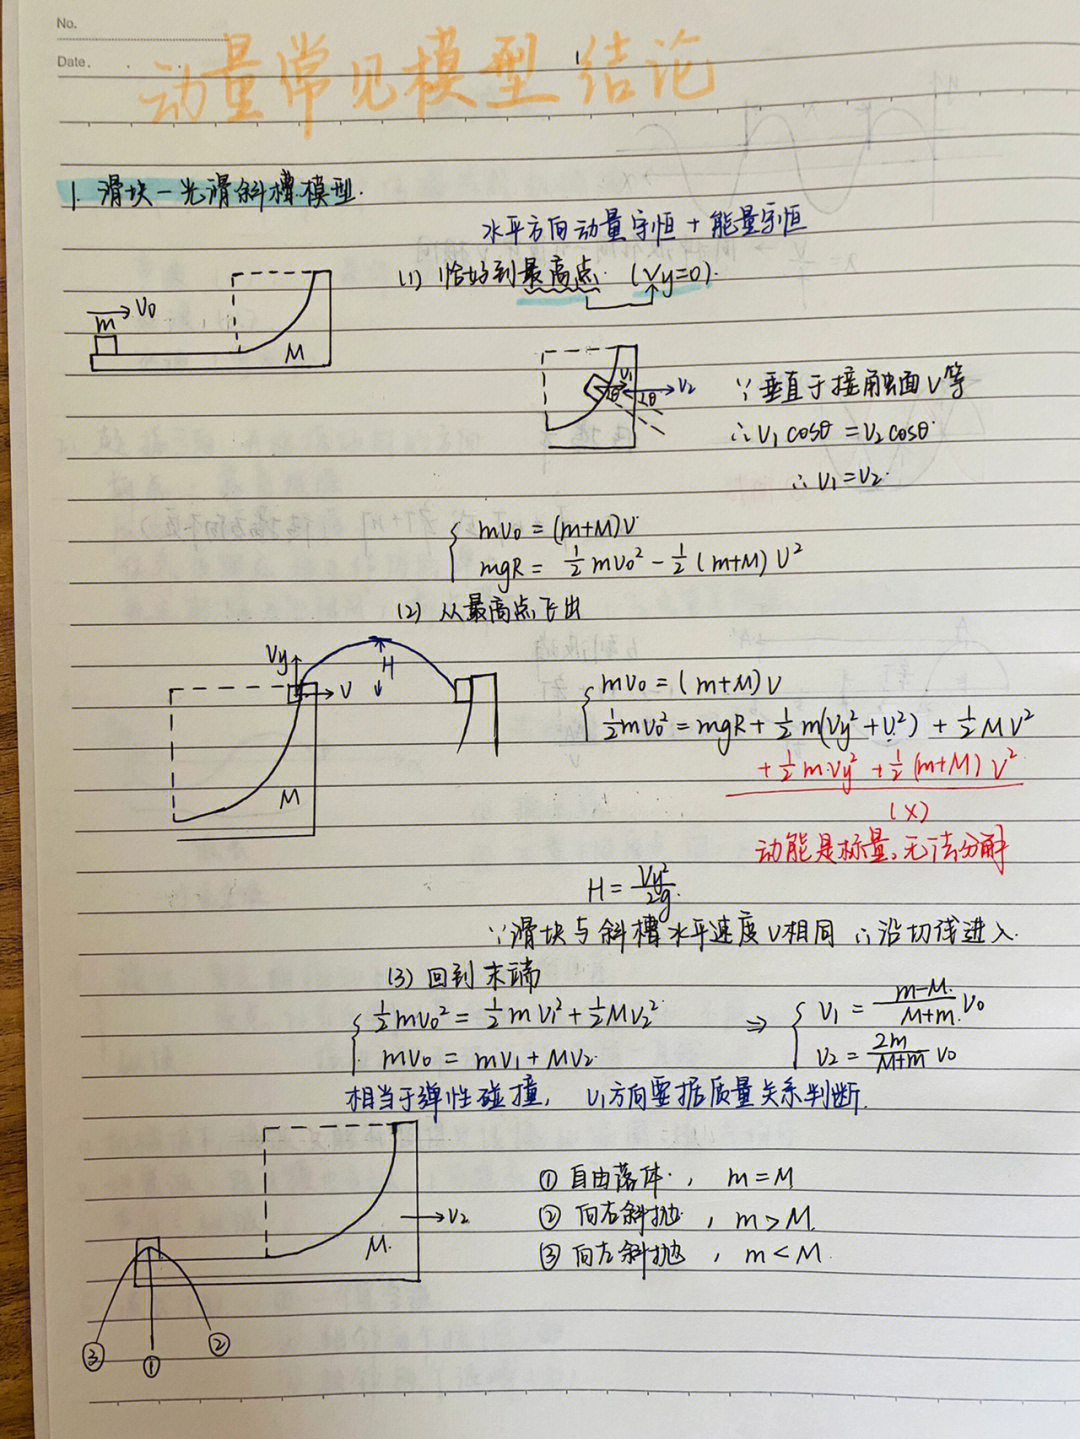 No.
Date.
动量常见模型 结论
1. 滑块—光滑斜槽模型.
水平方向动量守恒 + 能量守恒
(1) 恰好到最高点. (Vy=0).
m V₀
M
V₁ V₂
θ θ
∵垂直于接触面V等
∴V₁cosθ = V₂cosθ.
∴V₁=V₂.
mV₀ = (m+M)V
mgR = ½mV₀² - ½(m+M)V²
(2) 从最高点飞出
Vy H
V
M
mV₀ = (m+M)V
½mV₀² = mgR + ½m(Vy²+V²) + ½MV²
+½mVy² + ½(m+M)V²
(×)
动能是标量,无法分解
H = Vy²/2g
∵滑块与斜槽水平速度V相同 ∴沿切线进入.
(3) 回到末端
½mV₀² = ½mV₁² + ½MV₂²
mV₀ = mV₁+MV₂.
⇒ V₁ = (m-M)/(M+m) V₀
V₂ = 2m/(M+m) V₀
相当于弹性碰撞, V₁方向要据质量关系判断.
M. V₂
① 自由落体., m=M
② 向右斜抛, m>M.
③ 向左斜抛, m<M.
③ ① ②